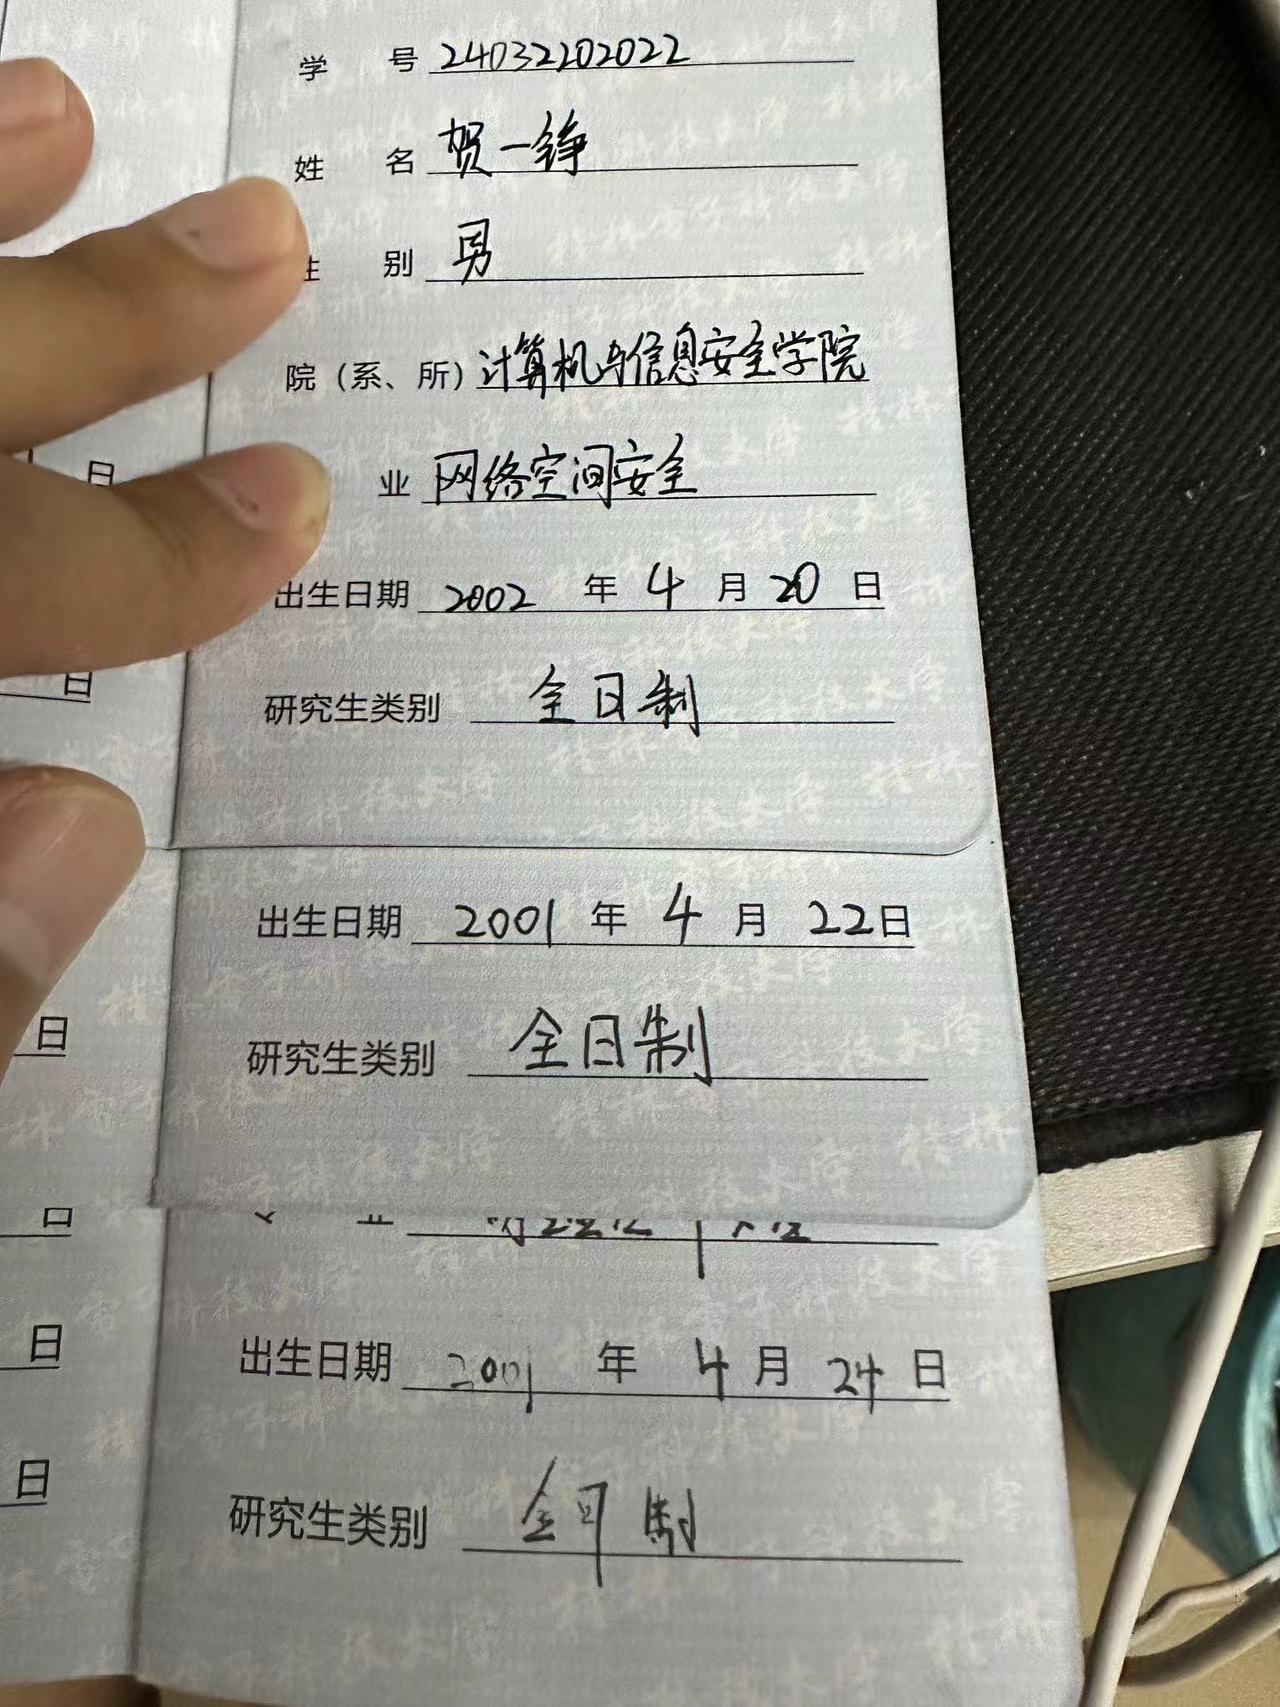 学 号 24032202022
姓 名 贺一铮
别 男
院（系、所） 计算机与信息安全学院
业 网络空间安全
出生日期 2002 年 4 月 20 日
研究生类别 全日制
出生日期 2001 年 4 月 22日
研究生类别 全日制
出生日期 2001 年 4 月 24 日
研究生类别 全日制
日
日
日
日
日
日